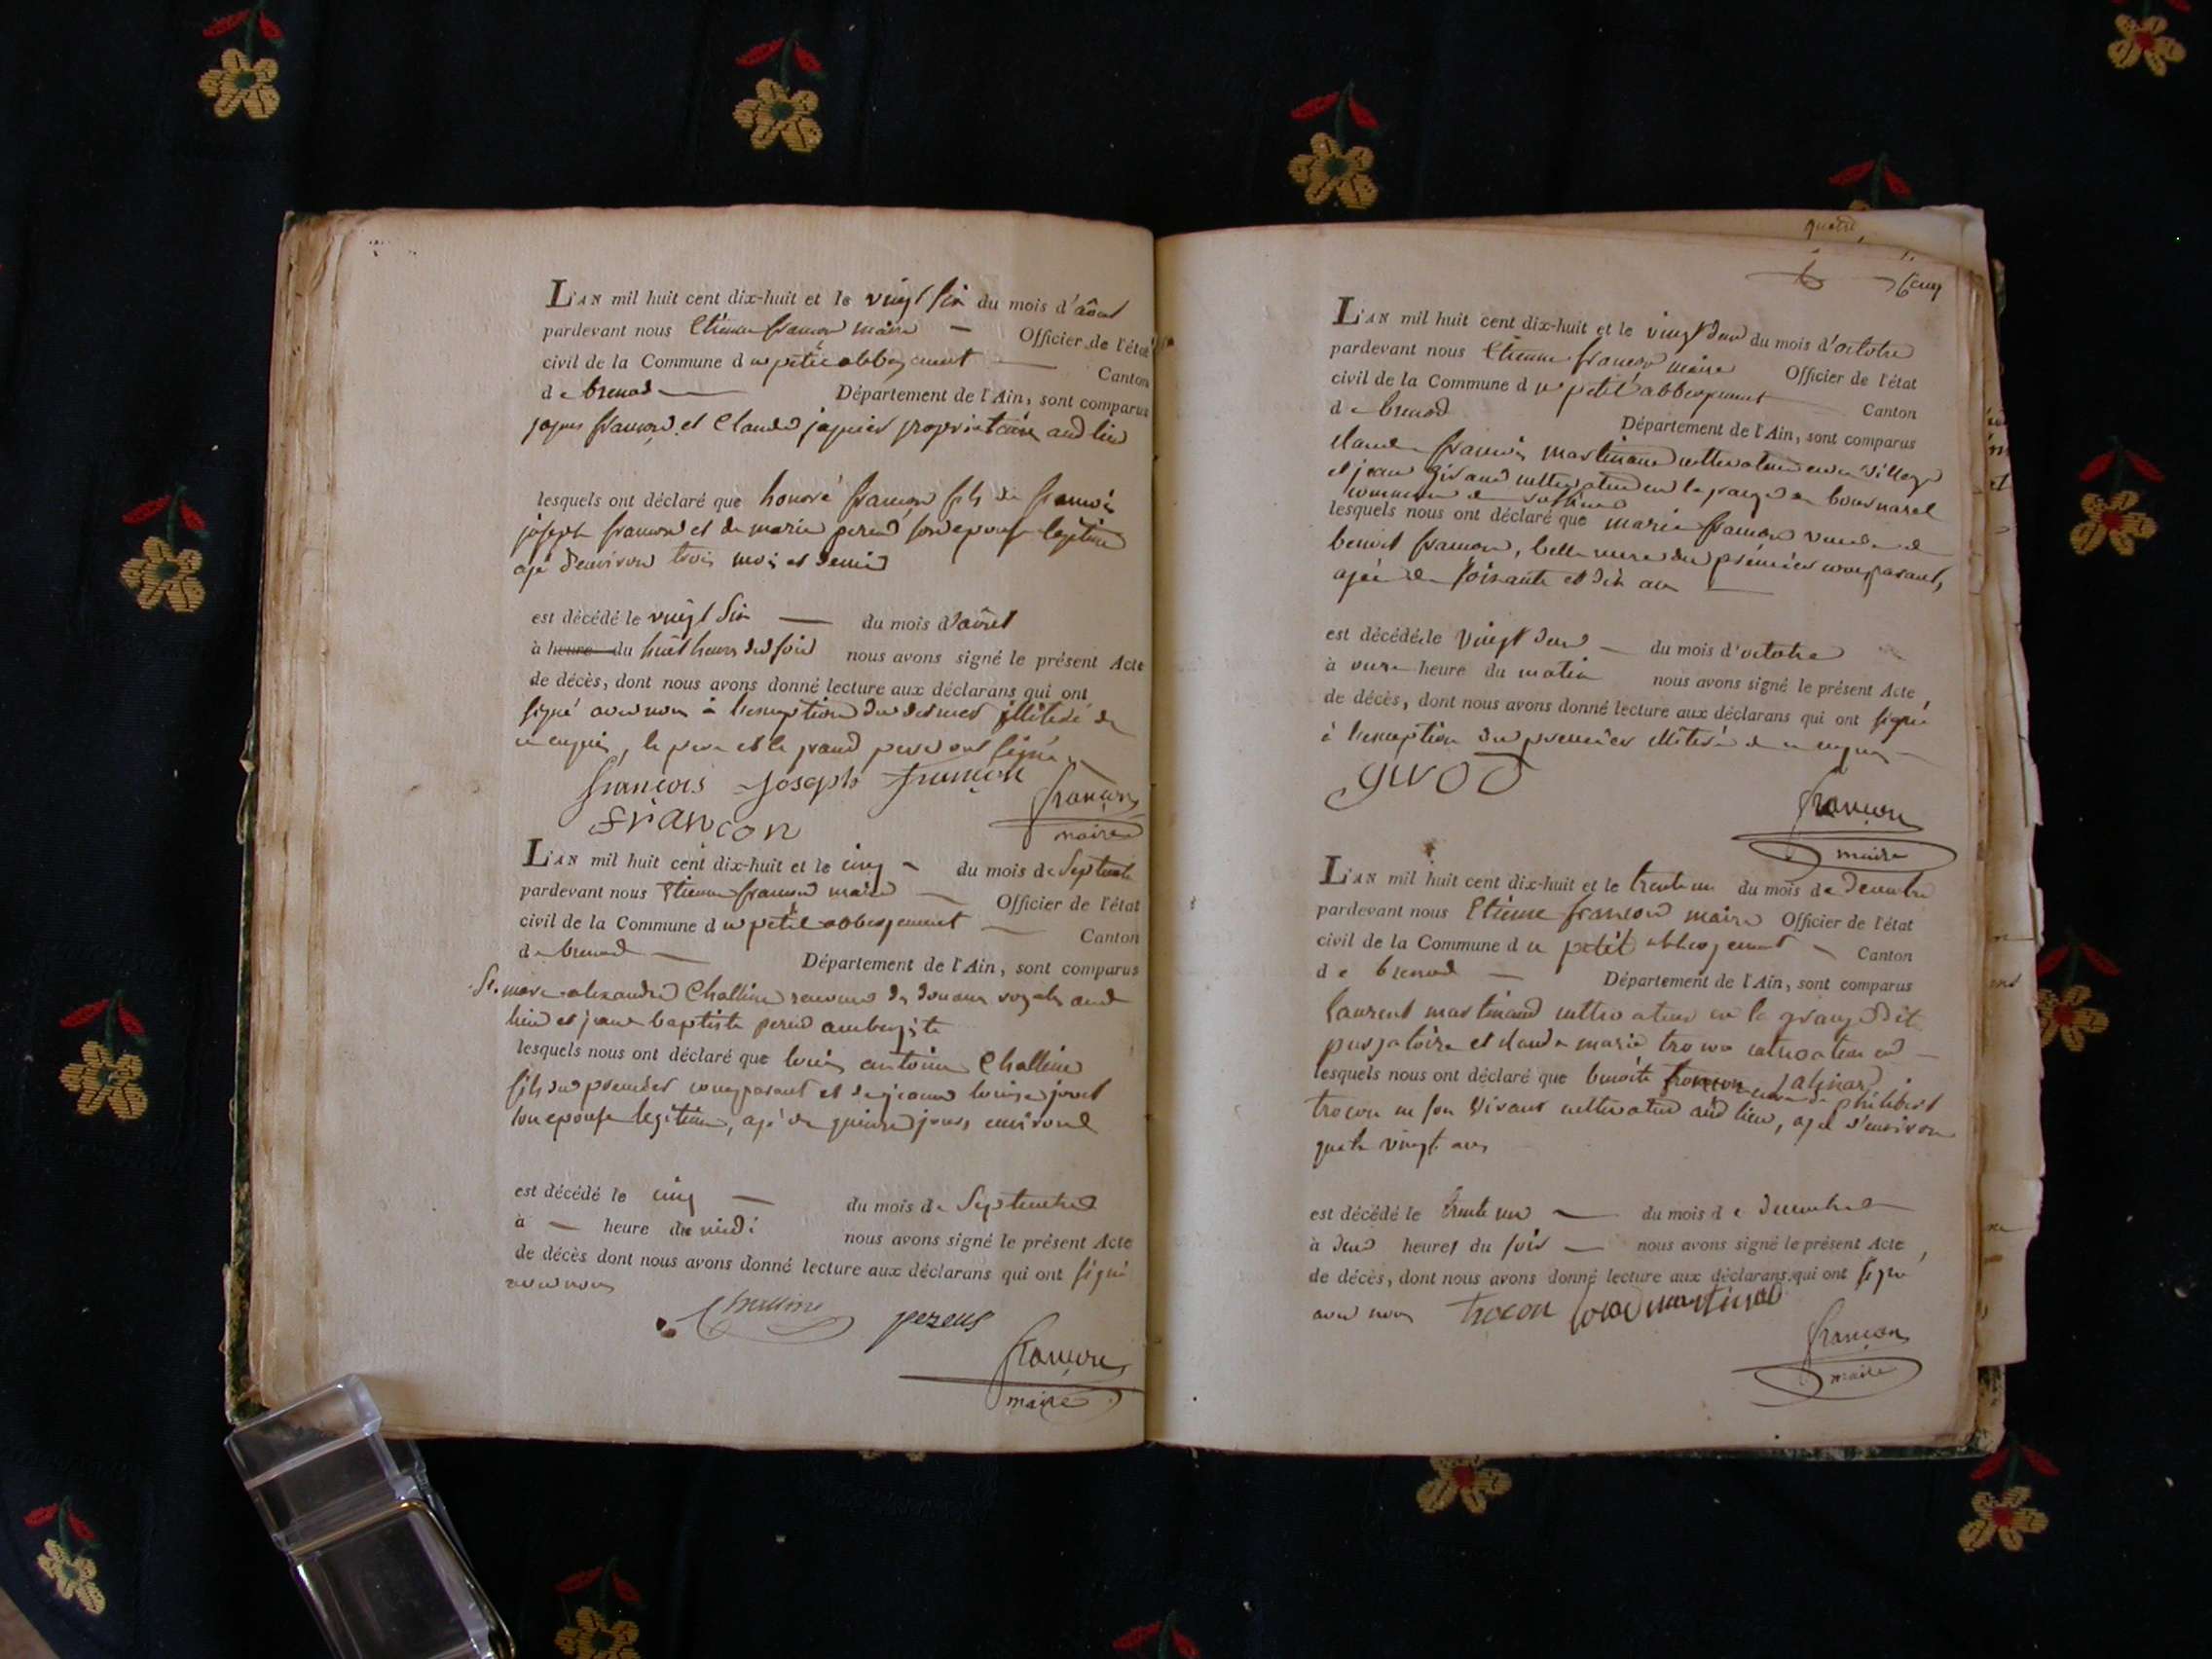 L'AN mil huit cent dix-huit et le vingt six du mois d'août
pardevant nous Etienne françon maire — Officier de l'état
civil de la Commune du petit abbergement — Canton
de brenod — Département de l'Ain, sont comparus
françon et Claude propriétaires aud lieu
lesquels ont déclaré que honoré françon fils de françois
joseph françon et de marie perend son epouse legitime
agé d'environ trois mois et demi
est décédé le vingt six — du mois d'aôut
à heure du huit heures du soir nous avons signé le présent Acte
de décès, dont nous avons donné lecture aux déclarans qui ont
signé avec nous à l'exception du dernier illiteré de
ce enquis, le pere et le grand pere ont signé
françois Joseph françon
françon
françon
maire
L'AN mil huit cent dix-huit et le cinq — du mois de Septembre
pardevant nous Etienne françon maire — Officier de l'état
civil de la Commune du petit abbergement — Canton
de brenod — Département de l'Ain, sont comparus
Sr. marc alexandre Challine receveur des douanes royales aud
lieu et jean baptiste perend aubergiste
lesquels nous ont déclaré que louis antoine Challine
fils du premier comparant et de jeanne louise
son epouse legitime, agé de quinze jours environ
est décédé le cinq — du mois de Septembre
à — heure de midi nous avons signé le présent Acte
de décès dont nous avons donné lecture aux déclarans qui ont signé
avec nous
Challine pereus
françon
maire
quatre
6 cinq
L'AN mil huit cent dix-huit et le vingt deux du mois d'octobre
pardevant nous Etienne françon maire Officier de l'état
civil de la Commune du petit abbergement — Canton
de brenod Département de l'Ain, sont comparus
claude françois martinand cultivateur en ce village
et jean girod cultivateur en la grange de
commune de
lesquels nous ont déclaré que marie françon veuve de
benoit françon, belle mere du premier comparant,
agée de soixante et dix ans —
est décédé le vingt deux — du mois d'octobre
à onze heure du matin nous avons signé le présent Acte,
de décès, dont nous avons donné lecture aux déclarans qui ont signé
à l'exception du premier illiteré de ce enquis —
girod
françon
maire
L'AN mil huit cent dix-huit et le trente un du mois de decembre
pardevant nous Etienne françon maire Officier de l'état
civil de la Commune du petit abbergement — Canton
de brenod — Département de l'Ain, sont comparus
laurent martinand cultivateur en la grange dit
purgatoire et claude marie trocon cultivateur en —
lesquels nous ont déclaré que benoite veuve de philibert
trocon en son vivant cultivateur aud lieu, agé d'environ
quatre vingt ans
est décédé le trente un — du mois de decembre
à deux heures du soir — nous avons signé le présent Acte,
de décès, dont nous avons donné lecture aux déclarans qui ont signé
avec nous trocon martinand
françon
maire